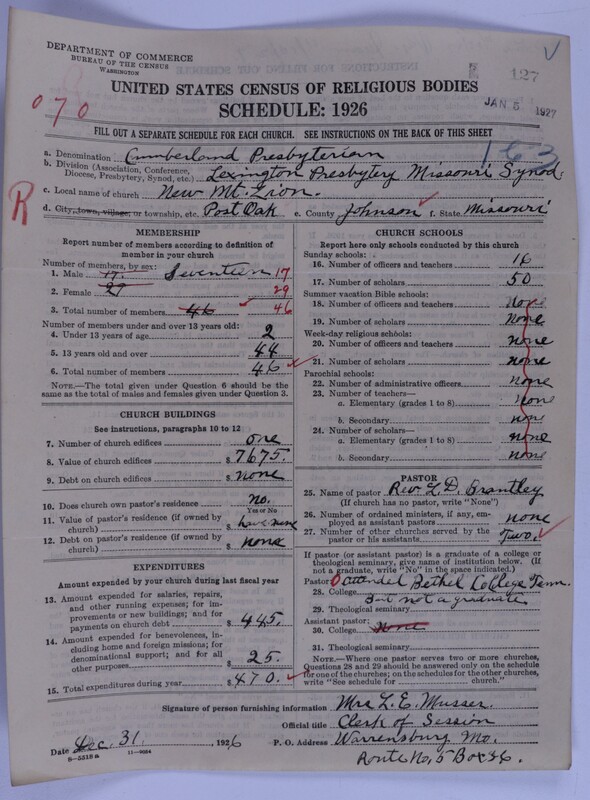 DEPARTMENT OF COMMERCE
BUREAU OF THE CENSUS
WASHINGTON
127
JAN 5 1927
UNITED STATES CENSUS OF RELIGIOUS BODIES
SCHEDULE: 1926
070
FILL OUT A SEPARATE SCHEDULE FOR EACH CHURCH. SEE INSTRUCTIONS ON THE BACK OF THIS SHEET
163
a. Denomination Cumberland Presbyterian
b. Division (Association, Conference, Diocese, Presbytery, Synod, etc.) Lexington Presbytery Missouri Synod
c. Local name of church New Mt. Zion.
R
d. City, town, village, or township, etc. Post Oak e. County Johnson f. State Missouri
MEMBERSHIP
Report number of members according to definition of member in your church
Number of members, by sex:
1. Male 17. Seventeen 17
2. Female 29 29
3. Total number of members 46 46
Number of members under and over 13 years old:
4. Under 13 years of age 2
5. 13 years old and over 44
6. Total number of members 46
NOTE.—The total given under Question 6 should be the same as the total of males and females given under Question 3.
CHURCH BUILDINGS
See instructions, paragraphs 10 to 12
7. Number of church edifices one
8. Value of church edifices $ 7675.
9. Debt on church edifices $ none
10. Does church own pastor's residence? no.
Yes or No
11. Value of pastor's residence (if owned by church) $ have none
12. Debt on pastor's residence (if owned by church) $ none
EXPENDITURES
Amount expended by your church during last fiscal year
13. Amount expended for salaries, repairs, and other running expenses; for improvements or new buildings; and for payments on church debt $ 445.
14. Amount expended for benevolences, including home and foreign missions; for denominational support; and for all other purposes $ 25.
15. Total expenditures during year $ 470.
CHURCH SCHOOLS
Report here only schools conducted by this church
Sunday schools:
16. Number of officers and teachers 16
17. Number of scholars 50
Summer vacation Bible schools:
18. Number of officers and teachers none
19. Number of scholars none
Week-day religious schools:
20. Number of officers and teachers none
21. Number of scholars none
Parochial schools:
22. Number of administrative officers none
23. Number of teachers—
a. Elementary (grades 1 to 8) none
b. Secondary none
24. Number of scholars—
a. Elementary (grades 1 to 8) none
b. Secondary none
PASTOR
25. Name of pastor Rev. L. D. Brantley
(If church has no pastor, write "None")
26. Number of ordained ministers, if any, employed as assistant pastors none
27. Number of other churches served by the pastor or his assistants Two.
If pastor (or assistant pastor) is a graduate of a college or theological seminary, give name of institution below. (If not a graduate, write "No" in the space indicated.)
Pastor: 0
28. College attended Bethel College Tenn.
But not a graduate
29. Theological seminary
Assistant pastor:
30. College None
31. Theological seminary
NOTE.—Where one pastor serves two or more churches, Questions 28 and 29 should be answered only on the schedule for one of the churches; on the schedules for the other churches, write "See schedule for church."
Signature of person furnishing information Mrs L. E. Musser
Official title Clerk of Session
Date Dec. 31, 1926 P. O. Address Warrensburg Mo.
8—5518a 11—9664 Route No. 5 Box 36.